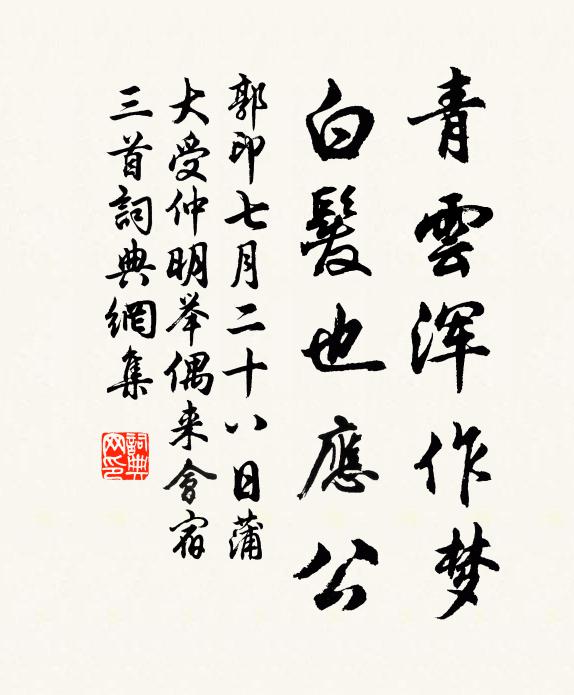 青雲浑作梦
白髮也應公
郭印七月二十八日蒲
大受仲明举偶来會宿
三首詞典網集
詞典网印